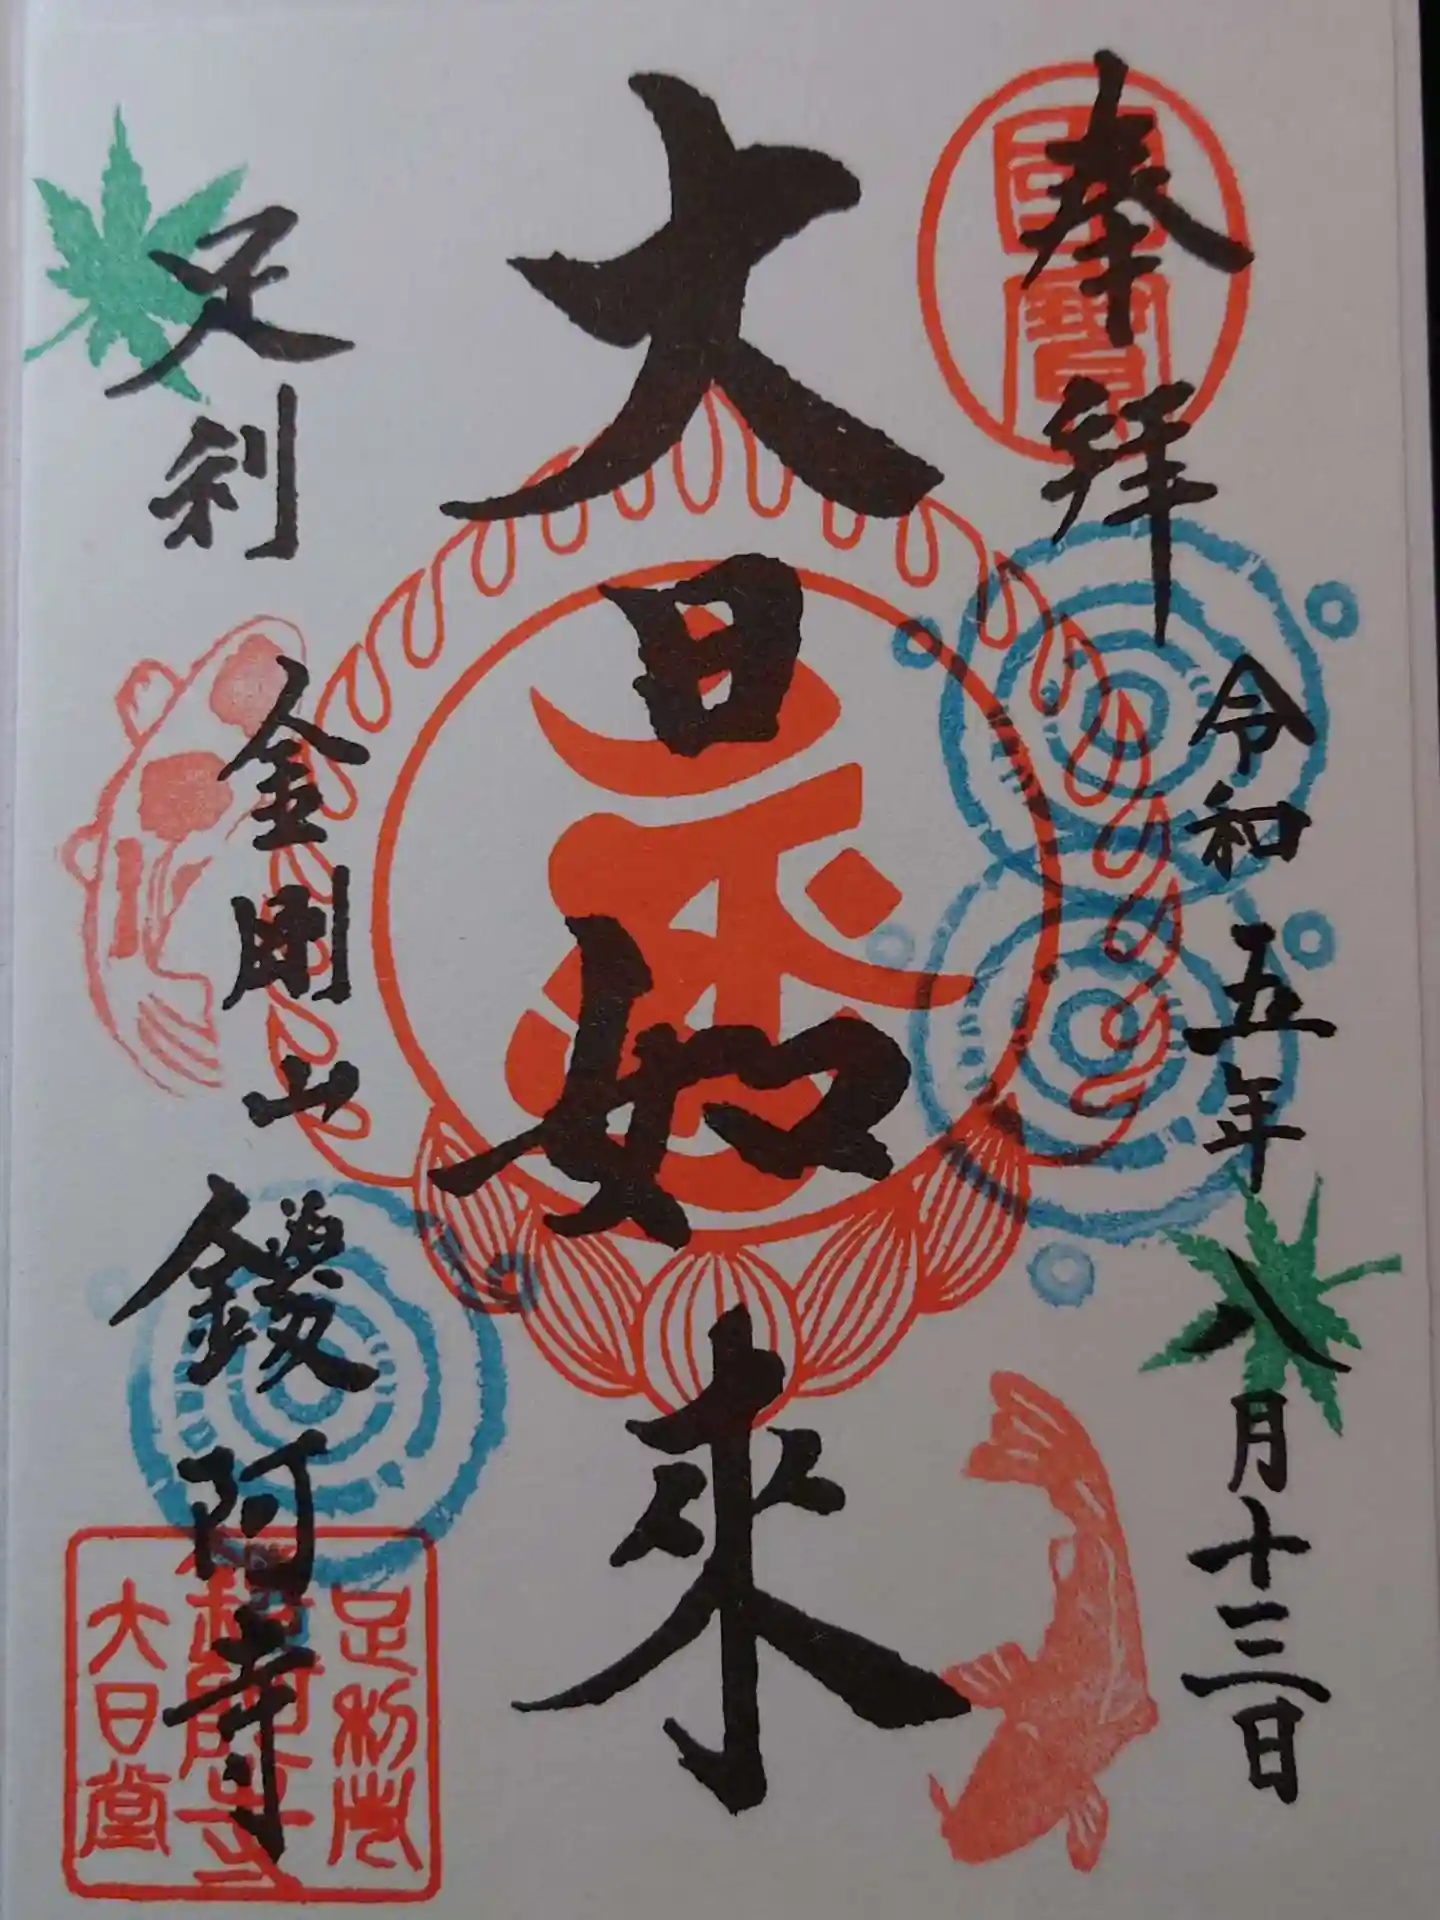 奉拝
令和五年八月十三日
大日如来
足利
金剛山
鑁阿寺
國寶
足利庄
鑁阿寺
大日堂